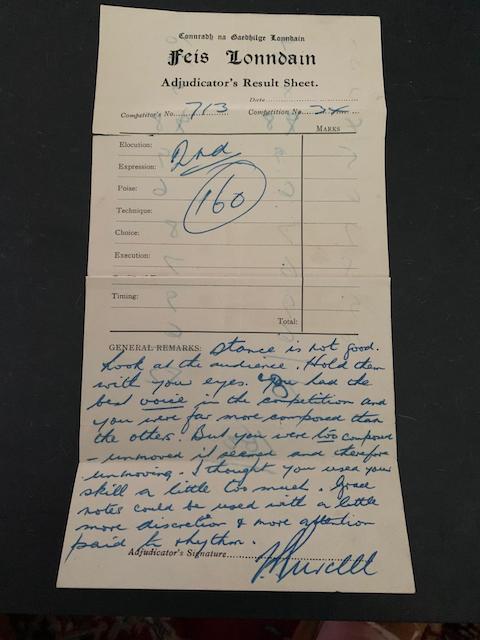 Connradh na Gaedhilge Lonndain
Feis Lonndain
Adjudicator's Result Sheet.
Date
Competitor's No. 713 Competition No.
MARKS
Elocution:
2nd
Expression:
160
Poise:
Technique:
Choice:
Execution:
Timing:
Total:
GENERAL REMARKS: Stance is not good.
Look at the audience. Hold them
with your eyes. You had the
best voice in the competition and
you were far more composed than
the others. But you were too composed
- unmoved it seemed and therefore
unmoving. I thought you used your
skill a little too much. Grace
notes could be used with a little
more discretion & more attention
paid to rhythm.
Adjudicator's Signature